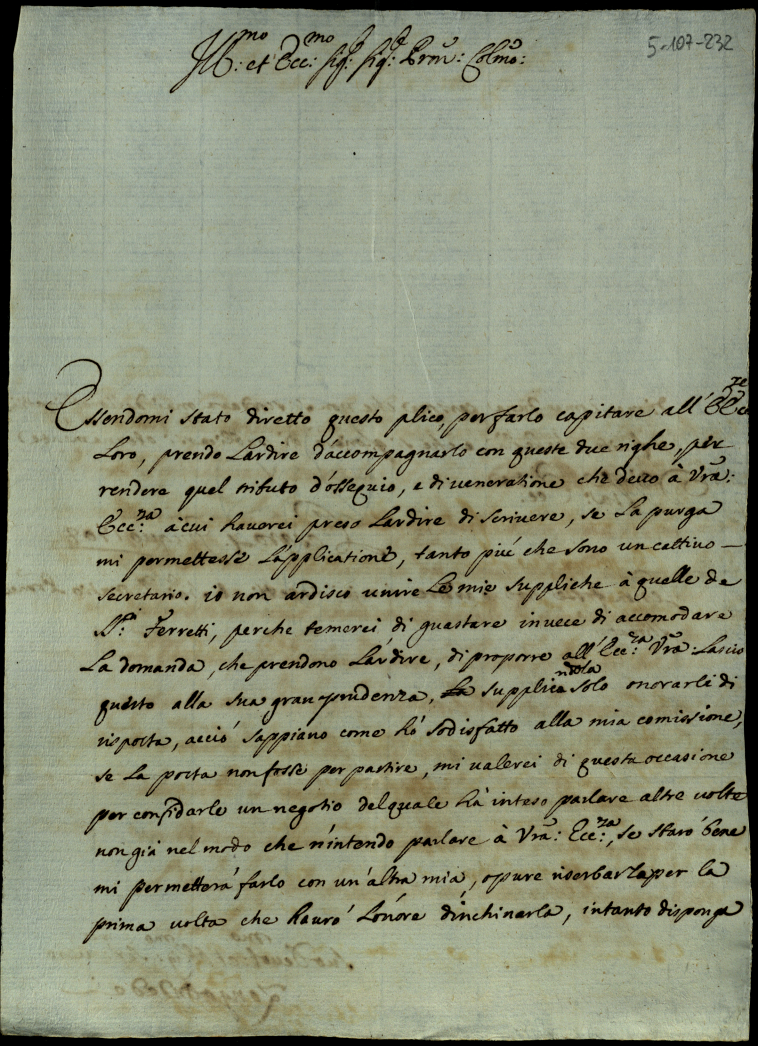 5-107-232
Ill:mo et Ecc:mo Sig:r Sig:r Prōn: Colmō:
Essendomi stato diretto questo plico, per farlo capitare all' EEcc:ze
Loro, prendo L'ardire d'accompagnarlo con queste due righe, per
rendere quel tributo d'ossequio, e di veneratione che devo à Vrā:
Ecc:za à cui haverei preso L'ardire di scrivere, se La purga
mi permettesse L'applicatione, tanto più che sono un cattivo —
secretario. io non ardisco unire Le mie suppliche à quelle de
S:ri Ferretti, perche temerei di guastare invece di accomodare
La domanda, che prendono L'ardire, di proporre all' Ecc:za Vrā: Lascio
questo alla sua gran prudenza, supplicandola solo onorarli di
risposta, acciò sappiano come hò sodisfatto alla mia comissione,
se La posta non fosse per partire, mi valerei di questa occasione
per confidarle un negotio del quale hà inteso parlare altre volte
non già nel modo che n'intendo parlare à Vrā: Ecc:za, se starò bene
mi permetterà farlo con un'altra mia, opure riserbarla per la
prima volta che haurò L'onore d'inchinarla, intanto disponga